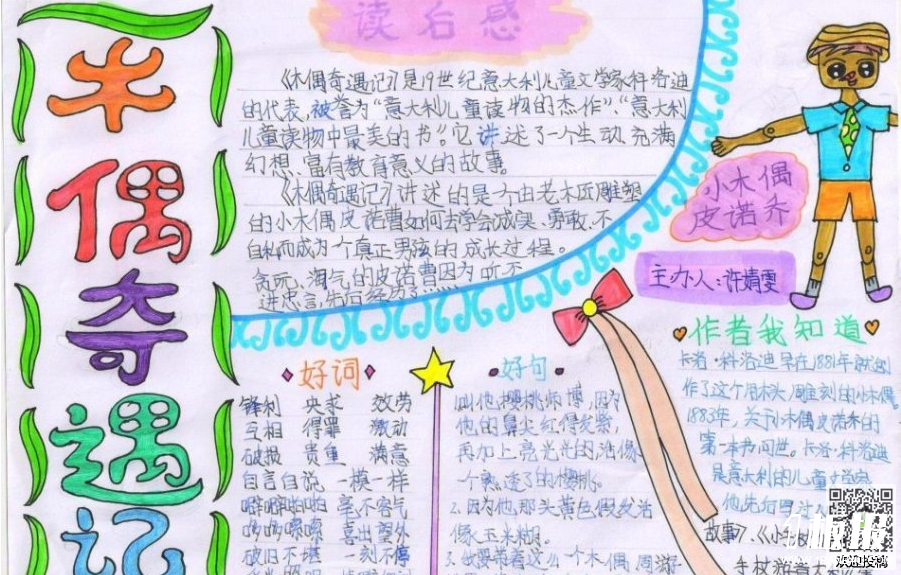 木偶奇遇记
读后感
《木偶奇遇记》是19世纪意大利儿童文学家科洛迪
的代表,被誉为“意大利儿童读物的杰作”、“意大利
儿童读物中最美的书”。它讲述了一个生动、充满
幻想、富有教育意义的故事。
《木偶奇遇记》讲述的是个由老木匠雕塑
的小木偶皮诺曹如何去学会诚实、勇敢、不
自私而成为个真正男孩的成长过程。
贪玩、淘气的皮诺曹因为听不
进忠言,先后经历了……
小木偶
皮诺乔
主办人:许婧雯
好词
锋利 央求 效劳
互相 得罪 激动
破损 贵重 满意
自言自说 一模一样
毫不客气
喜出望外
破旧不堪 一刻不停
好句
叫他樱桃师傅,因为
他的鼻尖红得发紫,
再加上亮光光的活像
一个熟透了的樱桃。
2.因为他那头黄色假发活
像玉米糊。
3.他要带着这么一个木偶周游
作者我知道
卡洛·科洛迪早在1881年就创
作了这个用木头雕刻的小木偶。
1883年,关于小木偶皮诺乔的
第一本书问世。卡洛·科洛迪
是意大利的儿童文学家
他先后
故事》、《小
欢迎投稿